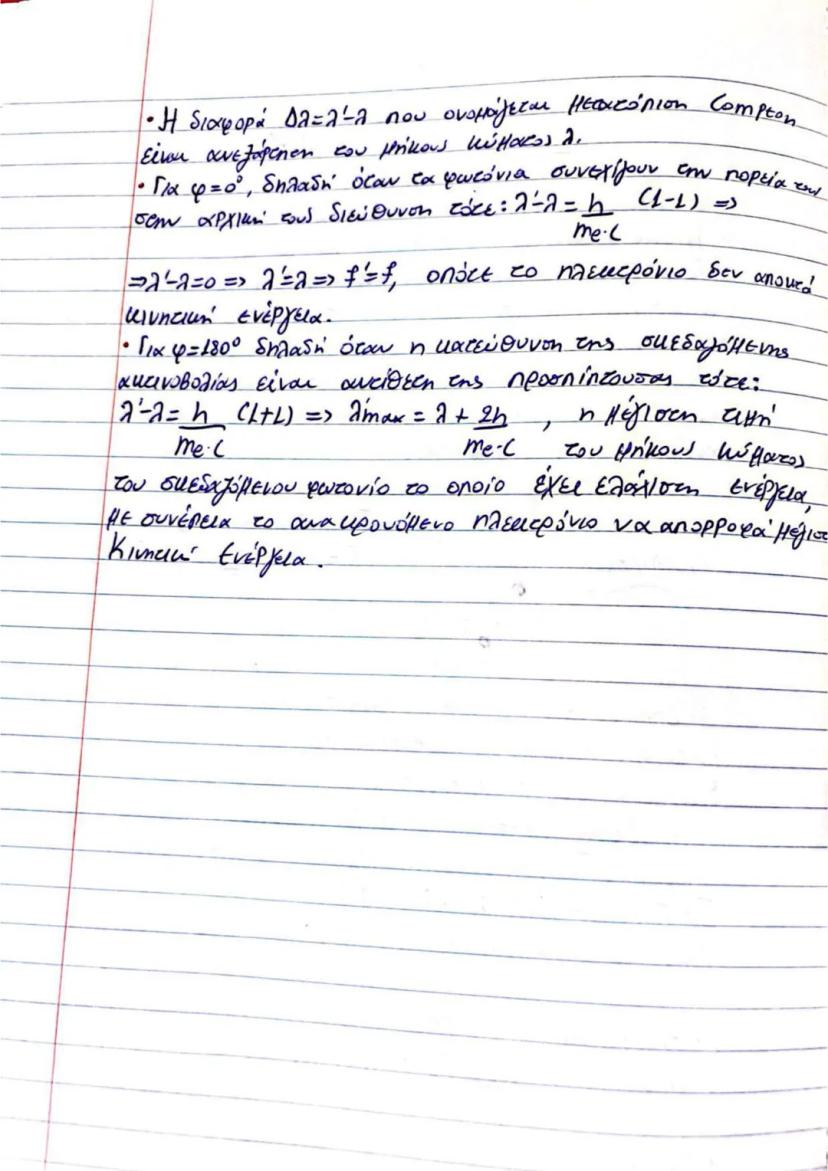 • Η διαφορά Δλ=λ'-λ που ονομάζεται μετατόπιση Compton
είναι ανεξάρτητη του μήκους κύματος λ.
• Για φ=0°, δηλαδή όταν τα φωτόνια συνεχίζουν την πορεία τους
στην αρχική τους διεύθυνση τότε: λ'-λ = h/me·c (1-1) =>
=> λ'-λ=0 => λ'=λ => f'=f, οπότε το ηλεκτρόνιο δεν αποκτά
κινητική ενέργεια.
• Για φ=180° δηλαδή όταν η κατεύθυνση της σκεδαζόμενης
ακτινοβολίας είναι αντίθετη της προσπίπτουσας τότε:
λ'-λ = h/me·c (1+1) => λ'max = λ + 2h/me·c , η μέγιστη τιμή
του μήκους κύματος
του σκεδαζόμενου φωτονίο το οποίο έχει ελάχιστη ενέργεια,
με συνέπεια το ανακρουόμενο ηλεκτρόνιο να απορροφά μέγιστ
Κινητική Ενέργεια.